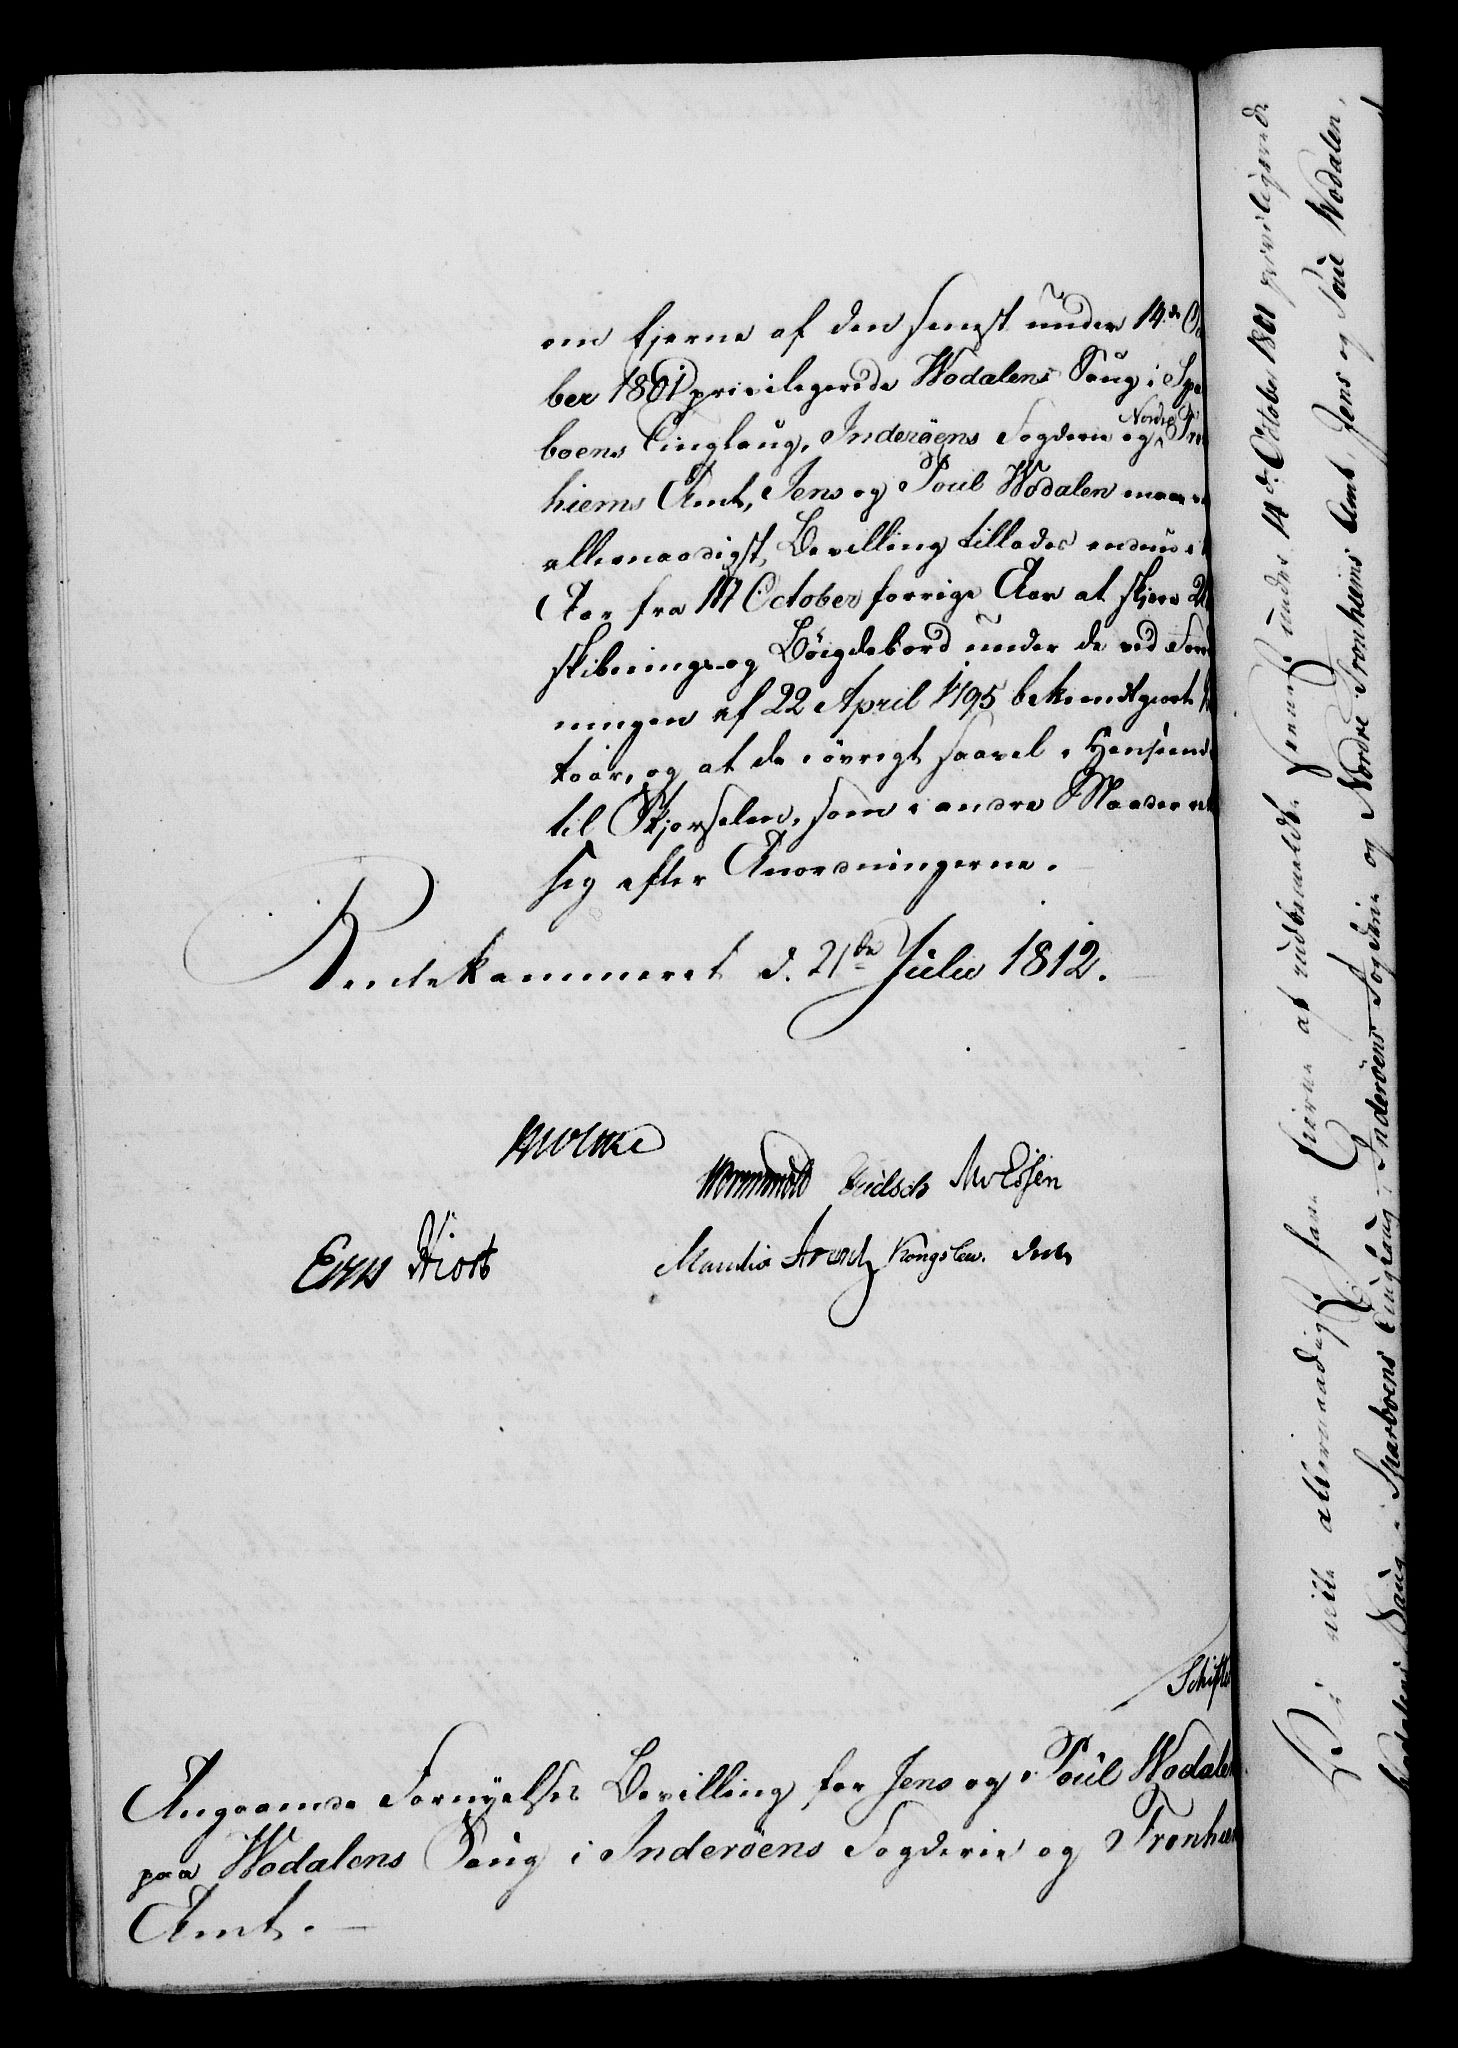 om Ejerne af den senest under 14de Oc
ber 1801 privilegerede Wodalens Saug i Spa
boens Tinglaug, Inderöens Fogderie og Nordre Tro
hiems Amt, Jens og Poul Wodalen maae
allernaadigst Bevilling tillades endnu i
Aar fra 14 October forrige Aar at skjere 2
skibnings og Böigdebord under de ved Forord
ningen af 22 April 1795 bekiendtgiorte
taar, og at de iövrigt saavel i Henseende
til Skjørselen, som i andre Maader
sig efter Anordningerne.
Rentekammeret d. 21de Julii 1812.
Moltke
Wormskiold Lütsch MvEssen
Hiort
Manthei Arentz Kongslew.
Schifte
Angaaende Fornyelses Bevilling for Jens og Poul Wodalen
paa Wodalens Saug i Inderöens Fogderie og Tronhiem
Amt.
Vi ville allernaadigst have Eierne af indbemeldte senest under 14de October 1801 privilegerede
Wodalens Saug i Sparboens Tinglaug, Inderöens Fogderie og Nordre Tronhiems Amt, Jens og Poul Wodalen,